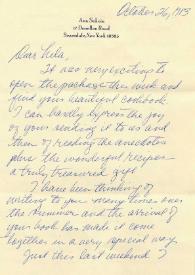 October 26, 1983
Ann Sultan
17 Drumlin Road
Rosendale, New York 10583
Dear Lela,
It was very exciting to
open the package this week and
find your beautiful cookbook.
I can hardly express the joy
of your sending it to us and
then of reading the anecdotes
plus the wonderful recipes -
a truly treasured gift.
I have been thinking of
writing to you many times over
the summer and the arrival of
your book has made it come
together in a very special way.
Just this last weekend I